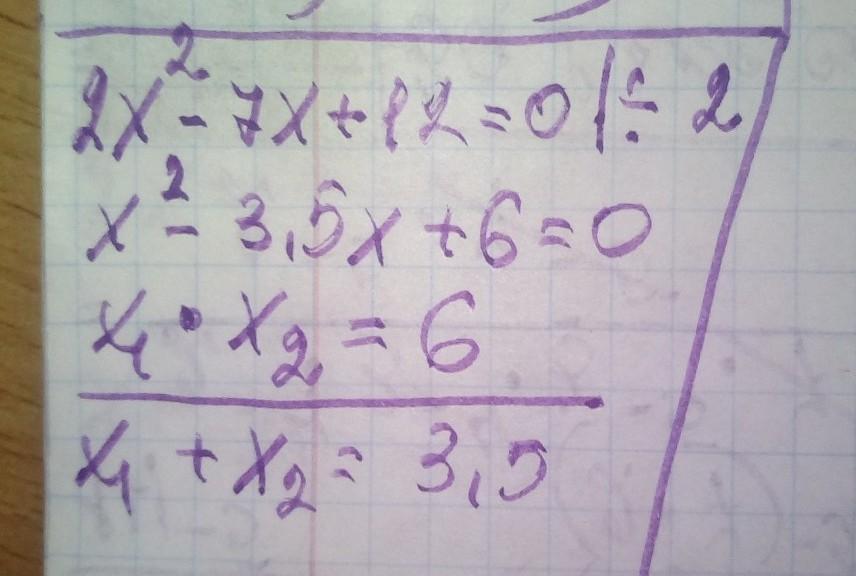 2x² - 7x + 12 = 0 | ÷ 2
x² - 3,5x + 6 = 0
x₁ • x₂ = 6
x₁ + x₂ = 3,5